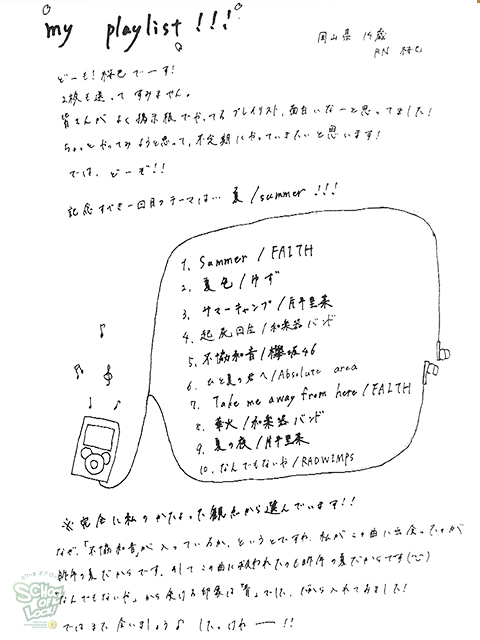 my playlist!!!
岡山県 14歳
RN 桜む
どーも!桜むでーす!
2枚も送ってすみません。
皆さんがよく掲示板でやってるプレイリスト、面白いなーと思ってました!
ちょっとやってみようと思って、不定期にやっていきたいと思います!
では、どーぞ!!
記念すべき一回目のテーマは… 夏/summer!!!
1. Summer/FAITH
2. 夏色/ゆず
3. サマーキャンプ/片平里菜
4. 起死回生/和楽器バンド
5. 不協和音/欅坂46
6. ひと夏の君へ/Absolute area
7. Take me away from here/FAITH
8. 華火/和楽器バンド
9. 夏の夜/片平里菜
10. なんでもないや/RADWIMPS
※完全に私のかたよった観点から選んでいます!!
なぜ、「不協和音」が入っているか、というとですね、私がこの曲に出会ったのが
昨年の夏だからです。そしてこの曲に救われたのも昨年の夏だからです
「なんでもないや」から受ける印象は「青」でした。だから入れてみました!
ではまた会いましょう♪ したっけねー!!
スクール オブ ロック
SCHOOL OF LOCK!